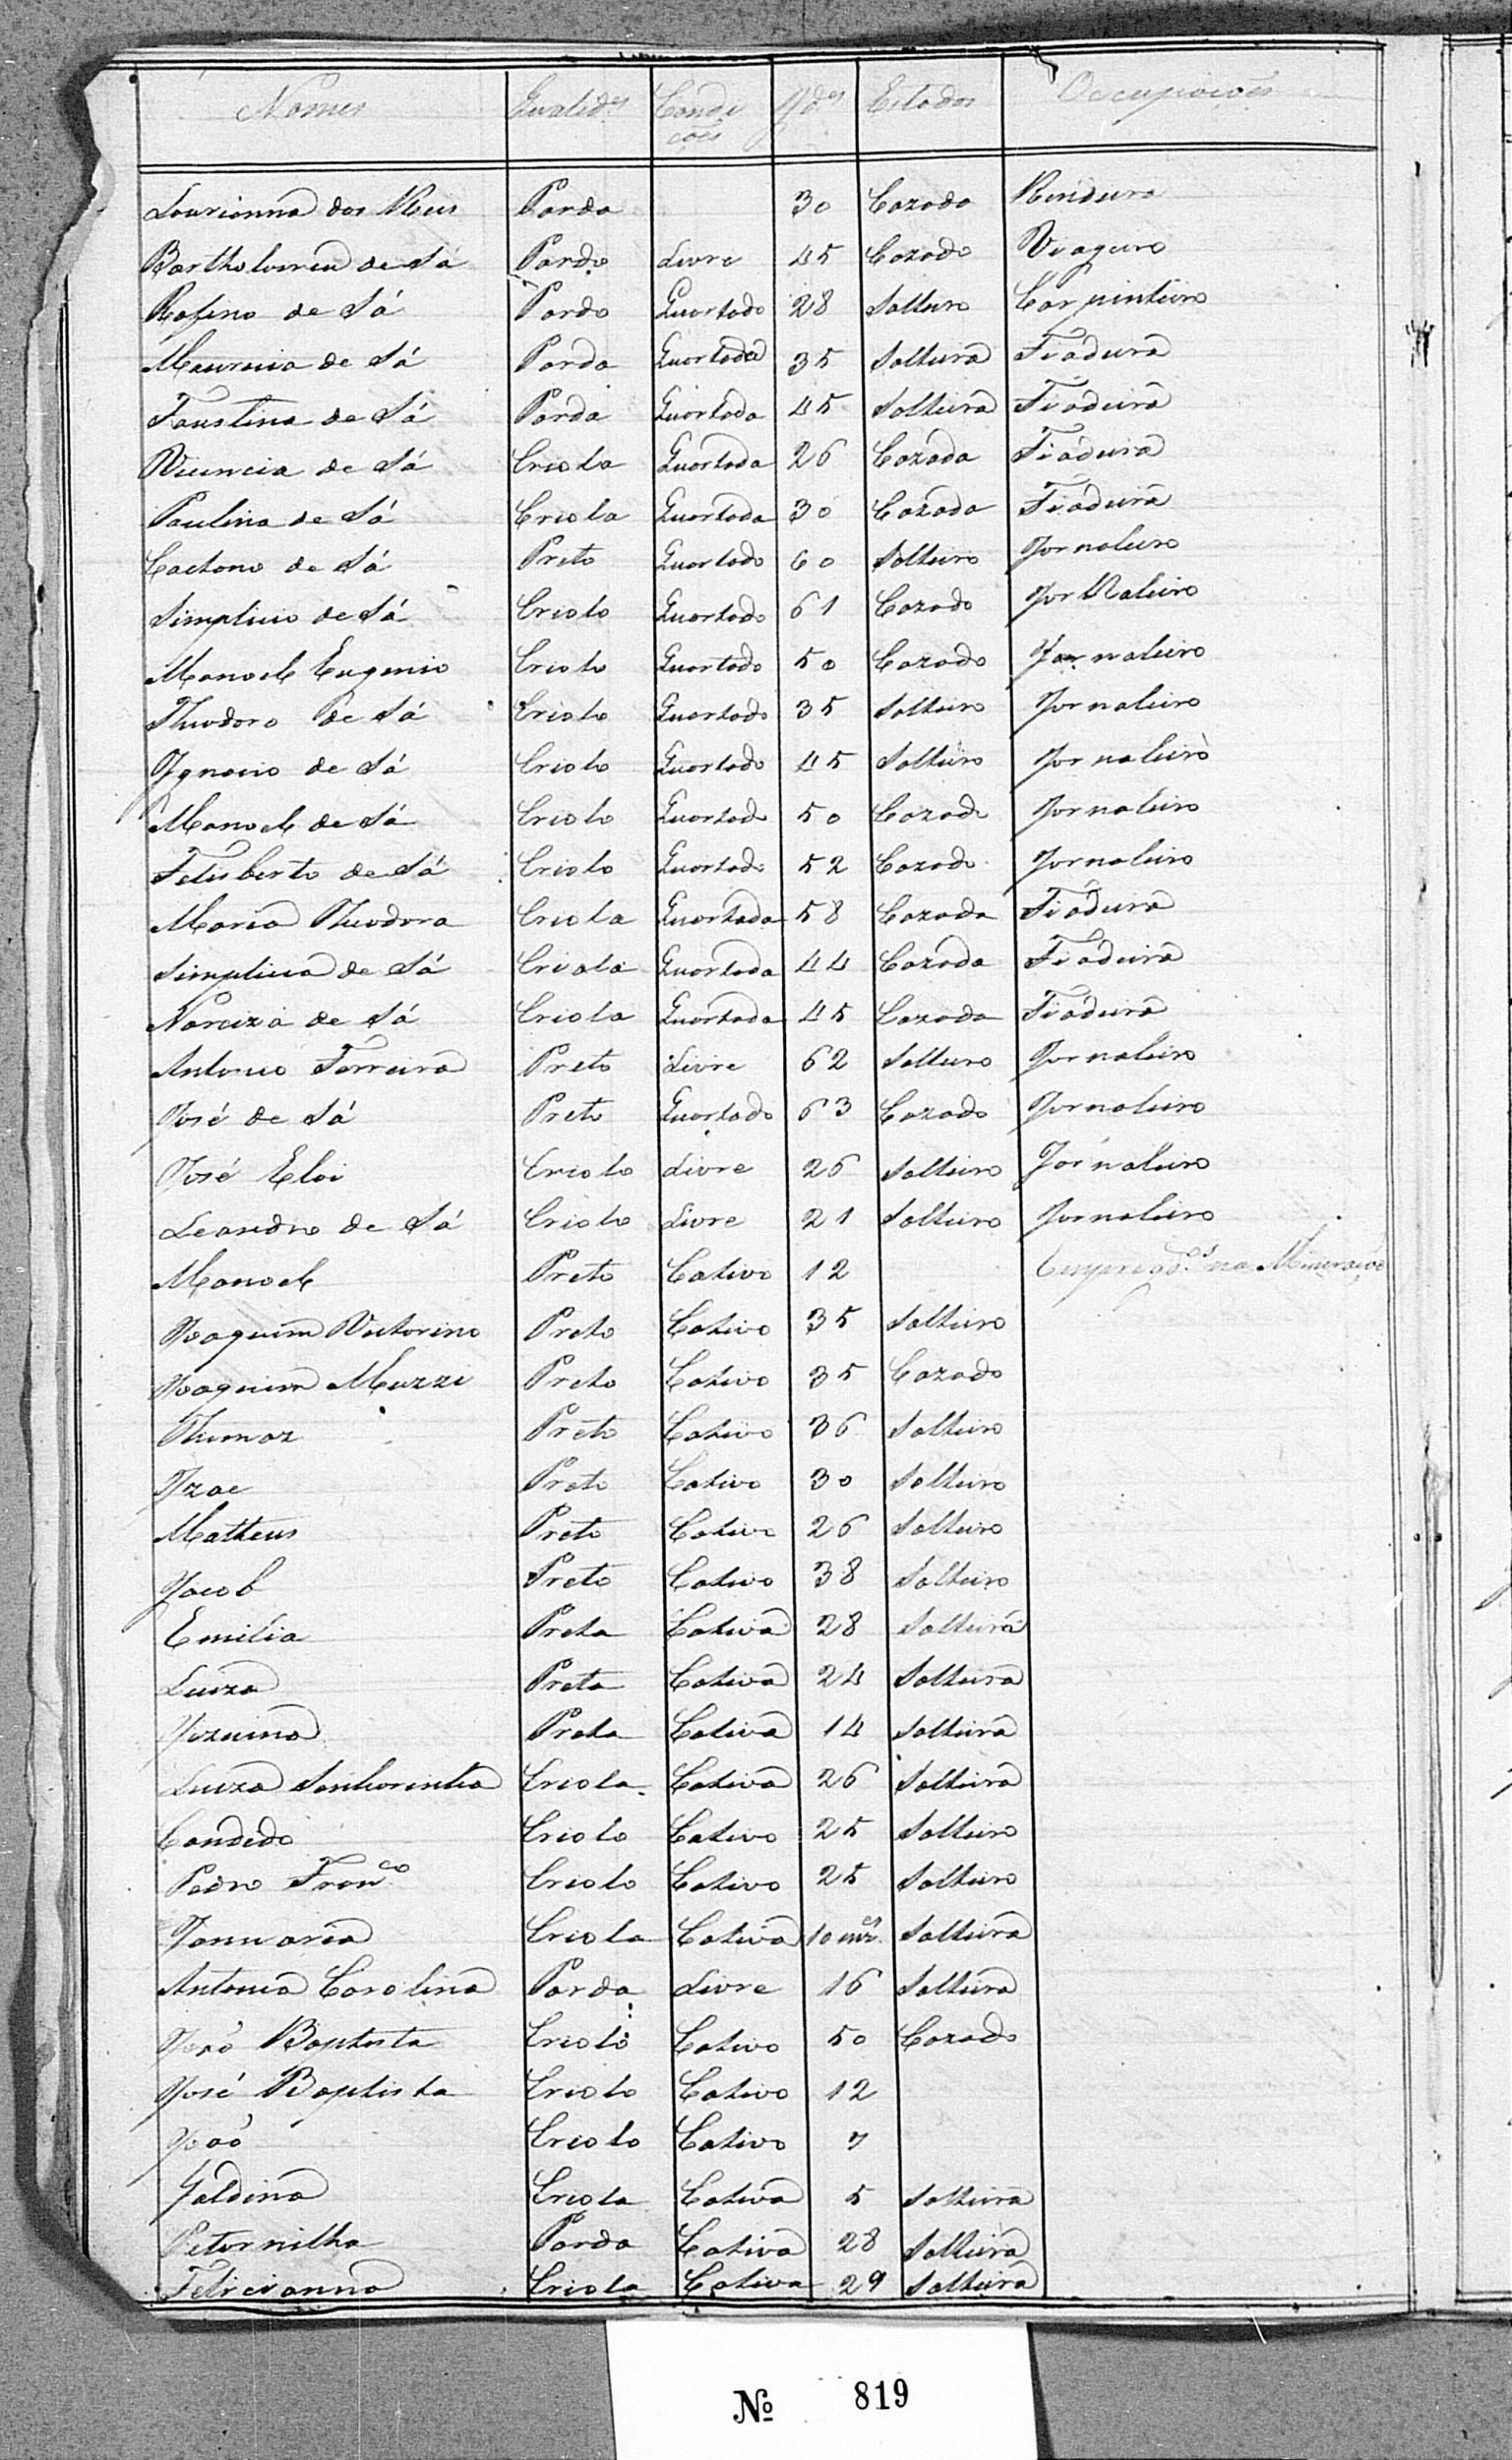 Nomes Qualid.es Condições Id.es Estados Occupacões
Lourianna dos Reis Parda 30 Cazada Rendeira
Bartholomeu de Sá Pardo Livre 45 Cazado Viageiro
Rofino de Sá Pardo Quartado 28 Solteiro Carpinteiro
Mauricia de Sá Parda Quartada 35 Solteira Fiadeira
Faustina de Sá Parda Quartada 45 Solteira Fiadeira
Vicencia de Sá Criola Quartada 26 Cazada Fiadeira
Paulina de Sá Criola Quartada 30 Cazada Fiadeira
Caetano de Sá Preto Quartado 60 Solteiro Jornaleiro
Simplicio de Sá Criolo Quartado 61 Cazado Jornaleiro
Manoel Eugenio Criolo Quartado 50 Cazado Jornaleiro
Theodoro de Sá Criolo Quartado 35 Solteiro Jornaleiro
Ignacio de Sá Criolo Quartado 45 Solteiro Jornaleiro
Manoel de Sá Criolo Quartado 50 Cazado Jornaleiro
Felisberto de Sá Criolo Quartado 52 Cazado Jornaleiro
Maria Theodora Criola Quartada 58 Cazada Fiadeira
Simplicia de Sá Criola Quartada 44 Cazada Fiadeira
Narciza de Sá Criola Quartada 45 Cazada Fiadeira
Antonio Ferreira Preto Livre 62 Solteiro Jornaleiro
José de Sá Preto Quartado 63 Cazado Jornaleiro
José Eloi Criolo Livre 26 Solteiro Jornaleiro
Leandro de Sá Criolo Livre 21 Solteiro Jornaleiro
Manoel Preto Cativo 12 Empregd.os na Mineração
Joaquim Victorino Preto Cativo 35 Solteiro
Joaquim Muzzi Preto Cativo 35 Cazado
Thimoz Preto Cativo 36 Solteiro
Izac Preto Cativo 30 Solteiro
Matheus Preto Cativo 26 Solteiro
Jacob Preto Cativo 38 Solteiro
Emilia Preta Cativa 28 Solteira
Luiza Preta Cativa 24 Solteira
Jozuina Preta Cativa 14 Solteira
Luiza Senhorinha Criola Cativa 26 Solteira
Candido Criolo Cativo 25 Solteiro
Pedro Fran.co Criolo Cativo 25 Solteiro
Januaria Criola Cativa 10 mz.es Solteira
Antonia Carolina Parda Livre 16 Solteira
João Baptista Criolo Cativo 50 Cazado
José Baptista Criolo Cativo 12
João Criolo Cativo 7
Galdina Criola Cativa 5 Solteira
Petornilha Parda Cativa 28 Solteira
Felicianna Criola Cativa 29 Solteira
№ 819